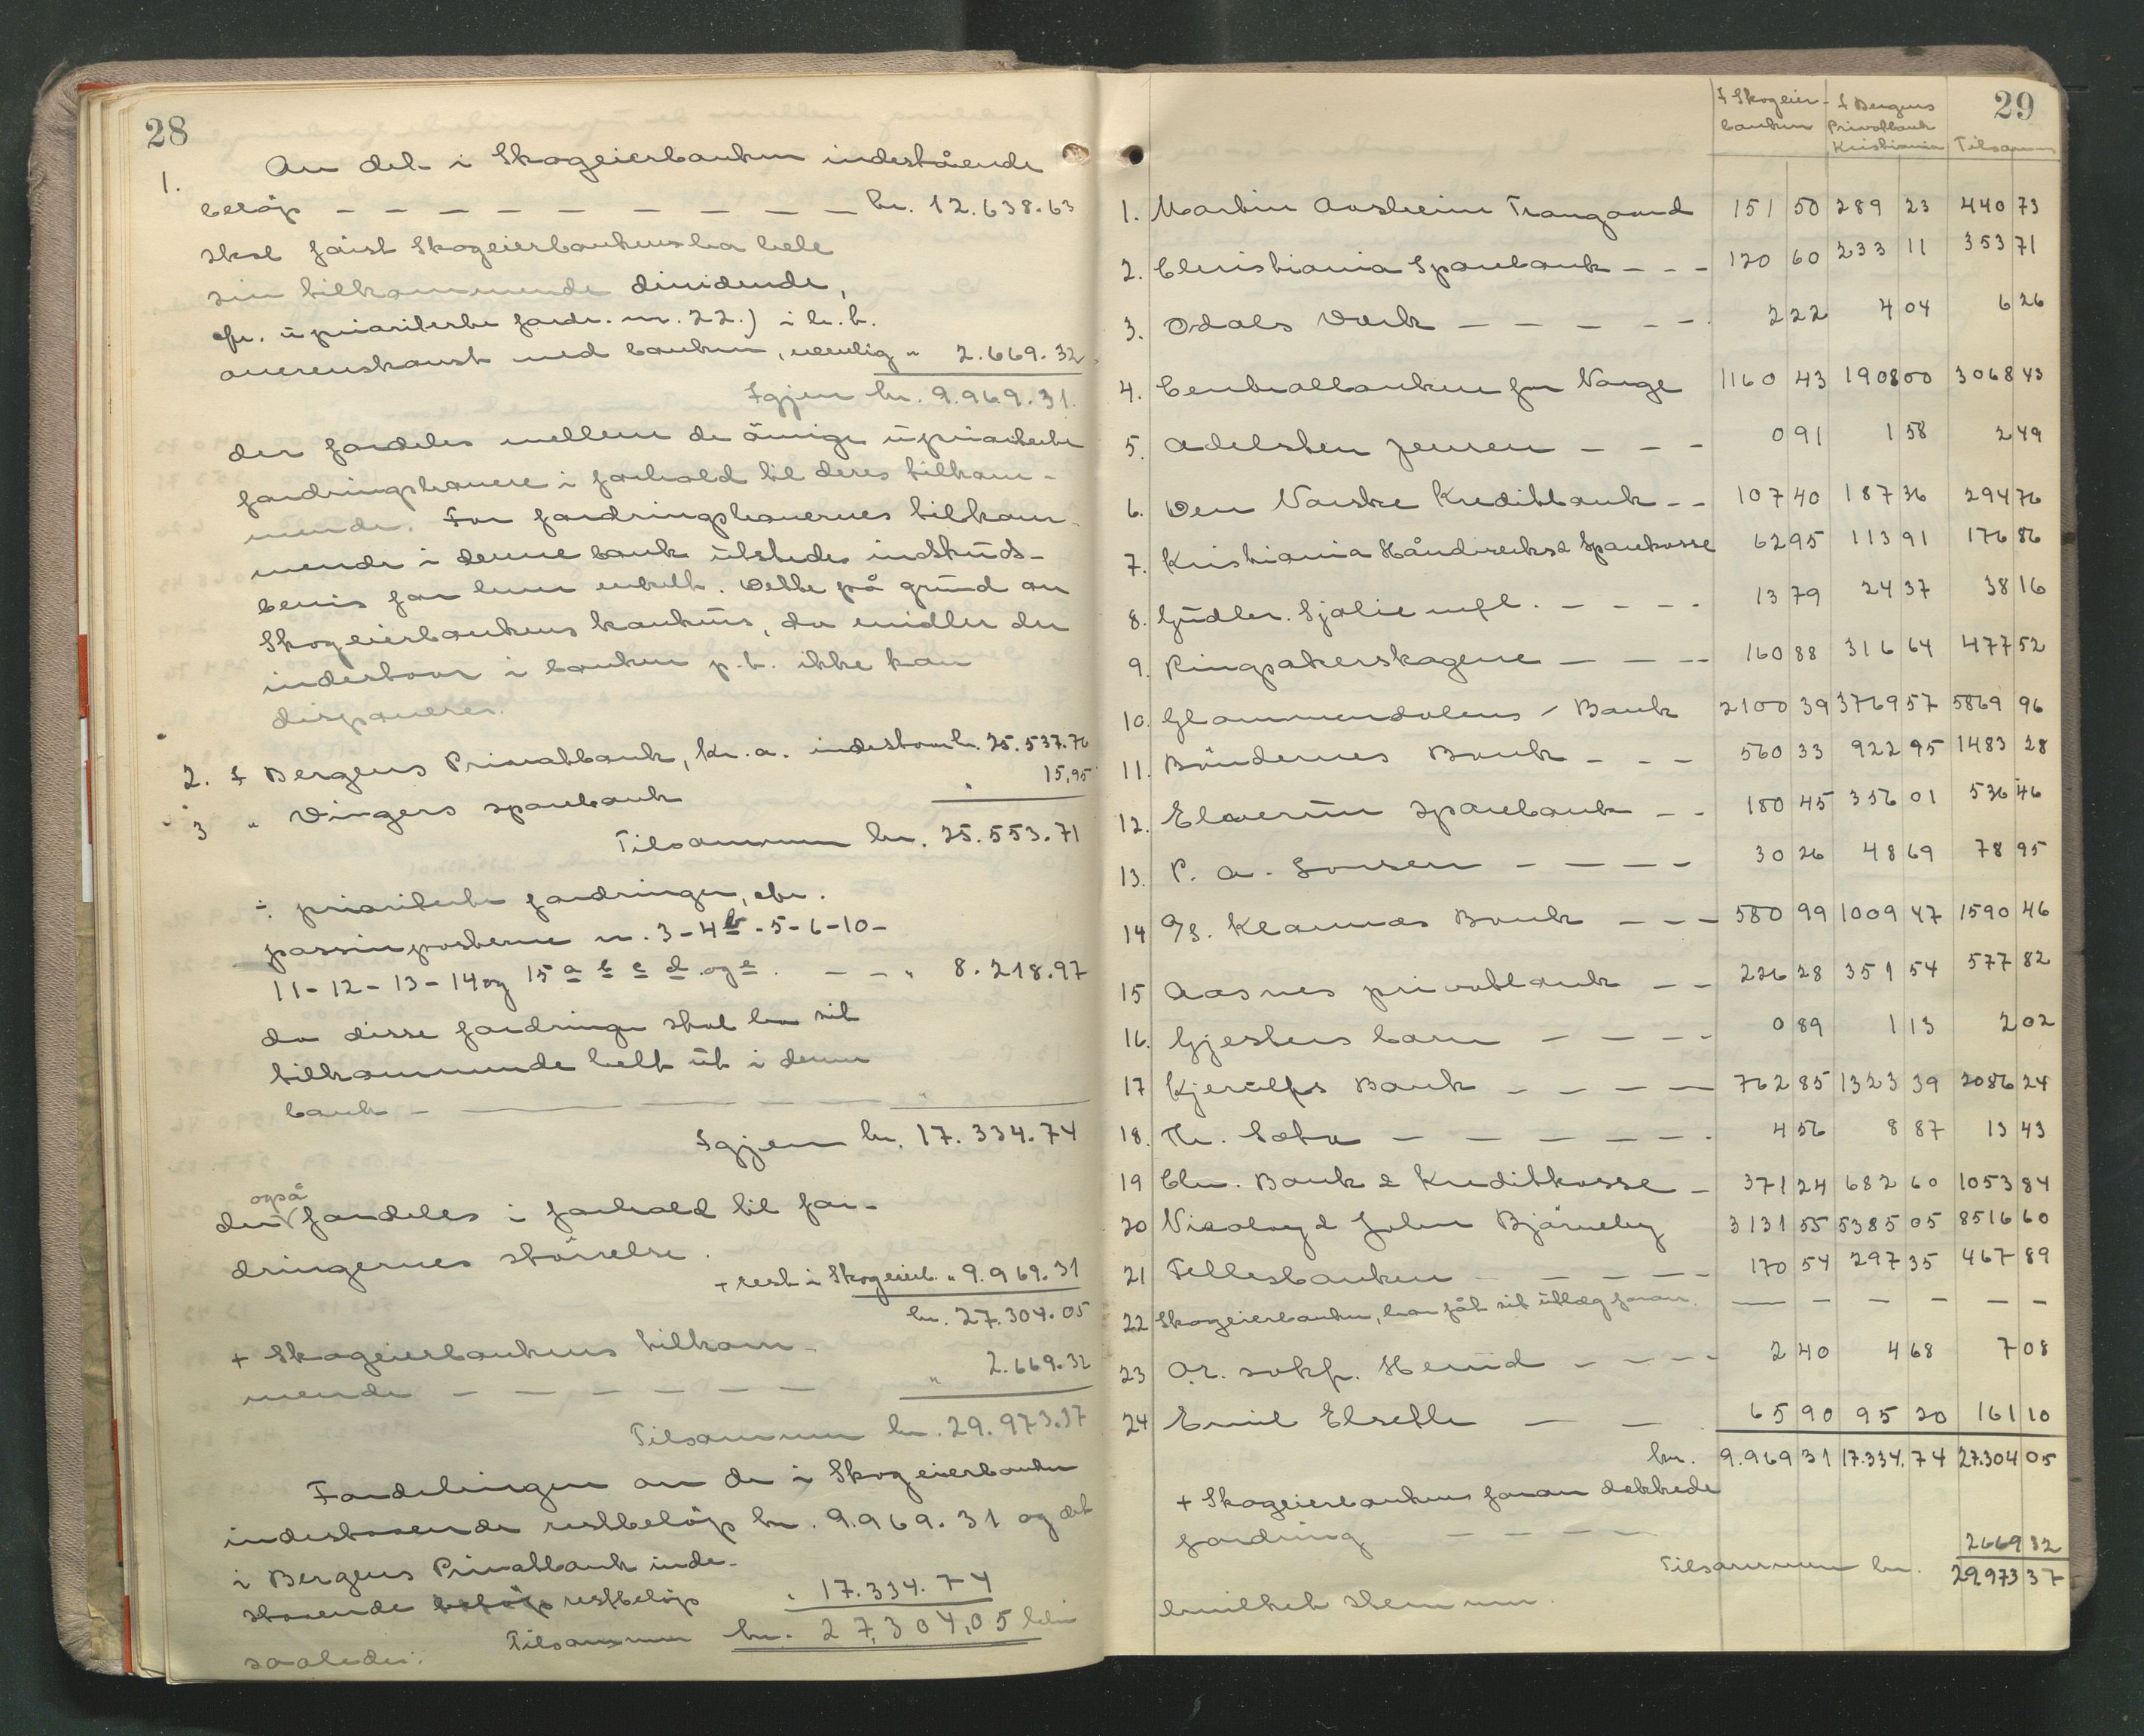 28
1. Av det i Skogeierbanken indestående
beløp — — — — — — — — — kr. 12.638.63
skal först Skogeierbanken ha hele
sin tilkommende dividende,
cfr. uprioriterte fordr. nr. 22.) i h.t.
overenskomst med banken, nemlig " 2.669.32
Igjen kr. 9.969.31.
der fordeles mellem de övrige upriorterte
fordringshavere i forhold til deres tilkom-
mende. For fordringshavernes tilkom-
mende i denne bank utstedes indskuds-
bevis for hver enkelt. Dette på grund av
Skogeierbankens konkurs, da midler der
indestaar i banken p.t. ikke kan
disponeres.
2. I Bergens Privatbank, Kr.a. indestaar kr. 25.537.76
3 " Vingers sparebank " 15,95
Tilsammen kr. 25.553.71
÷ priorterte fordringer, cfr.
passivposterne nr. 3-4b-5-6-10-
11-12-13-14 og 15 a b c d og e. — — " 8.218.97
da disse fordringer skal ha sit
tilkommende helt ut i denne
bank —
Igjen kr. 17.334.74
der også fordeles i forhold til for-
dringernes störrelse.
+ rest i Skogeierb. " 9.969.31
kr. 27.304.05
+ Skogeierbankens tilkom-
mende — — — — — — " 2.669.32
Tilsammen kr. 29.973.37
Fordelingen av de i Skogeierbanken
indestaaende restbelöp kr. 9.969.31 og det
i Bergens Privatbank inde-
staaende restbelöp " 17.334.74
Tilsammen kr. 27,304,05 blir
saaledes:
29
I Skogeier-banken | I Bergens Privatbank Kristiania | Tilsammen
1. Martin Aasheim Trangaard 151 50 289 23 440 73
2. Christiania Sparebank — — — 120 60 233 11 353 71
3. Odals Verk — — — — — 2 22 4 04 6 26
4. Centralbanken for Norge 1160 43 1908 00 3068 43
5. Adelsten Jensen — — — 0 91 1 58 2 49
6. Den Norske Kreditbank — — 107 40 187 36 294 76
7. Kristiania Håndverks & Sparekasse 62 95 113 91 176 86
8. Gudbr. Sjølie mfl. — — — — 13 79 24 37 38 16
9. Ringsakerskogene — — — 160 88 316 64 477 52
10. Glommendalens Bank 2100 39 3769 57 5869 96
11. Böndernes Bank — — — 560 33 922 95 1483 28
12. Elverum Sparebank — — 180 45 356 01 536 46
13. P. A. Larsen — — — — 30 26 48 69 78 95
14 A/S. Kiærnæs Bank — — — 580 99 1009 47 1590 46
15 Aasnes privatbank — — 226 28 351 54 577 82
16. Gjestens barn — — — — 0 89 1 13 2 02
17 Kjerulfs Bank — — — — 762 85 1323 39 2086 24
18. Th. Sætra — — — — — — 4 56 8 87 13 43
19 Chr. Bank & Kreditkasse — 371 24 682 60 1053 84
20 Nicolay & John Bjørneby 3131 55 5385 05 8516 60
21 Fellesbanken — — — — 170 54 297 35 467 89
22 Skogeierbanken, har fåt sit utlæg foran. — — — — — —
23 O.r. sakf. Hemid — — — — 2 40 4 68 7 08
24 Emil Elseth — — 65 90 95 20 161 10
kr. 9.969 31 17.334.74 27.304 05
+ Skogeierbankens foran dekkede
fordring — — — — 2669 32
Tilsammen kr. 29973 37
hvilket stemmer.